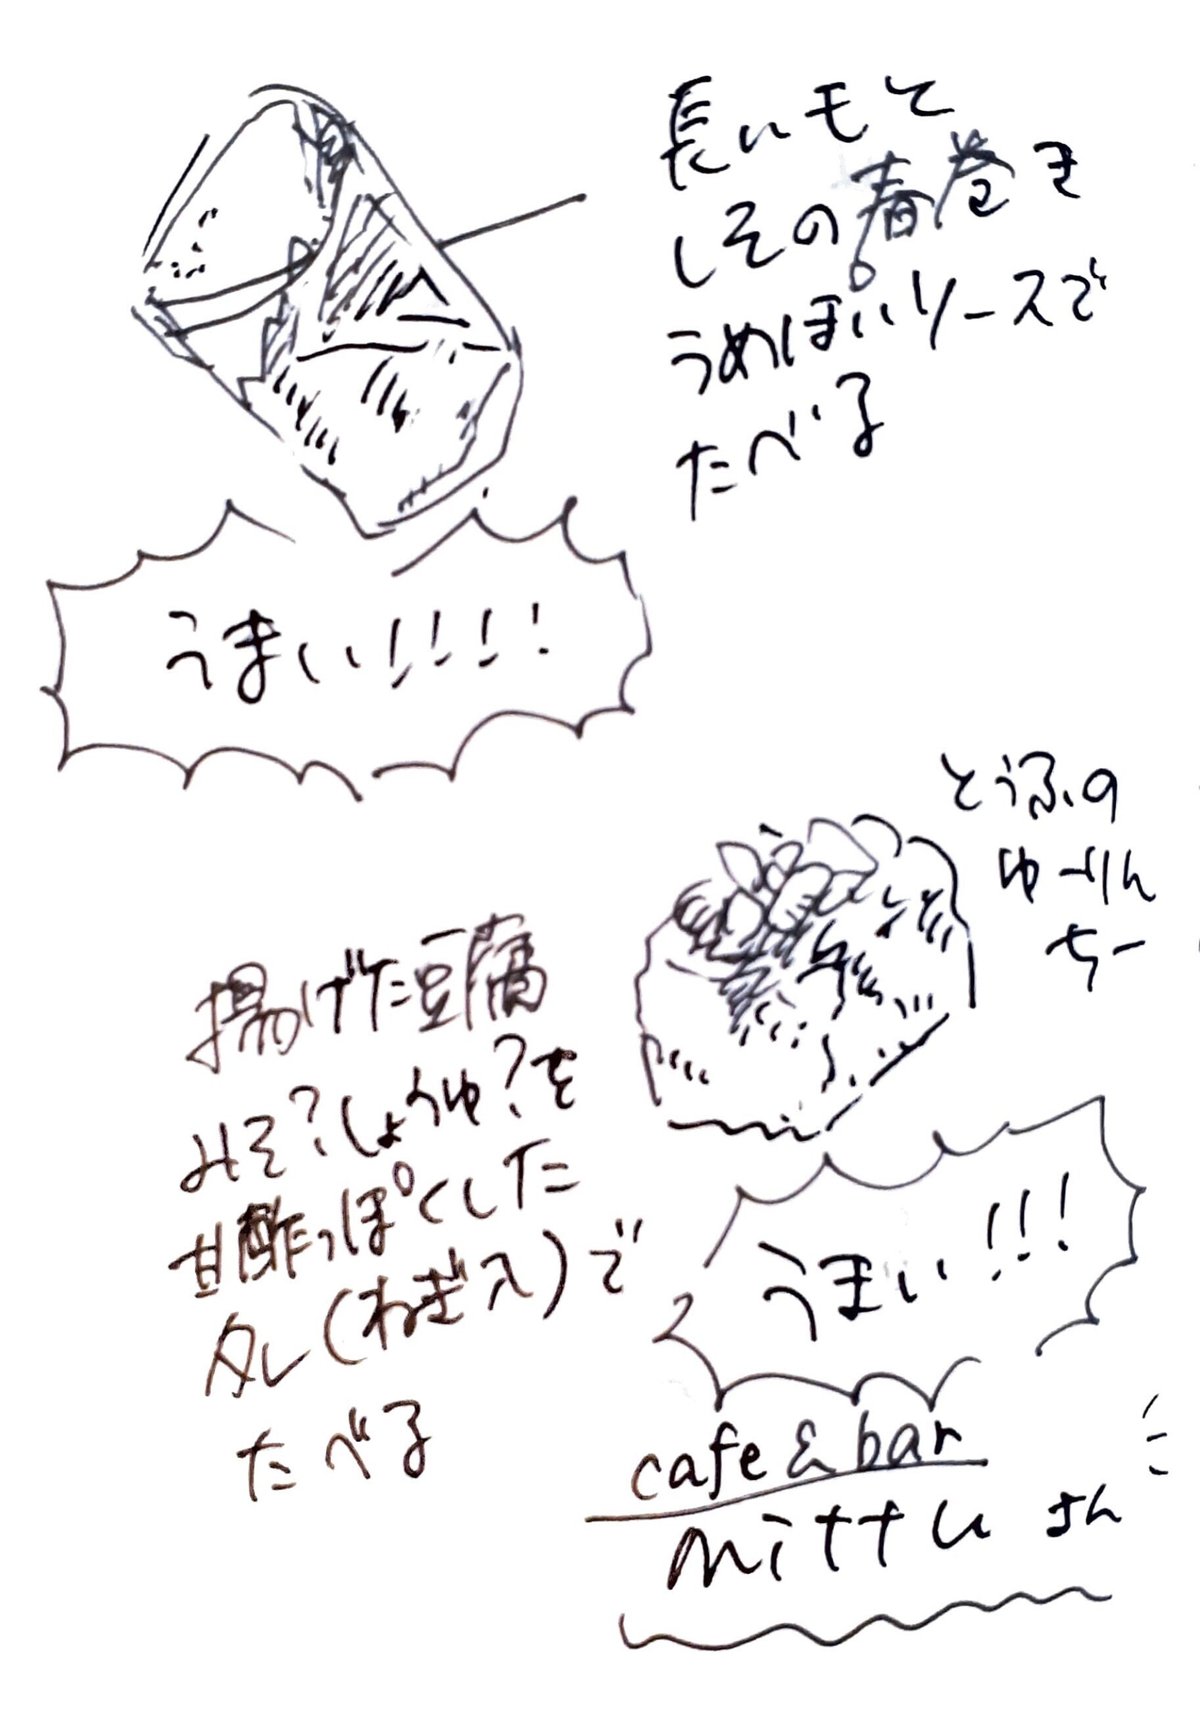 長いモと
しその春巻き
うめぽいソースで
たべる
うまい!!!!
とうふの
ゆーりん
ちー
揚げた豆腐
みそ?しょうゆ?を
甘酢っぽくした
タレ(ねぎ入)で
たべる
うまい!!!
cafe & bar
mittu さん